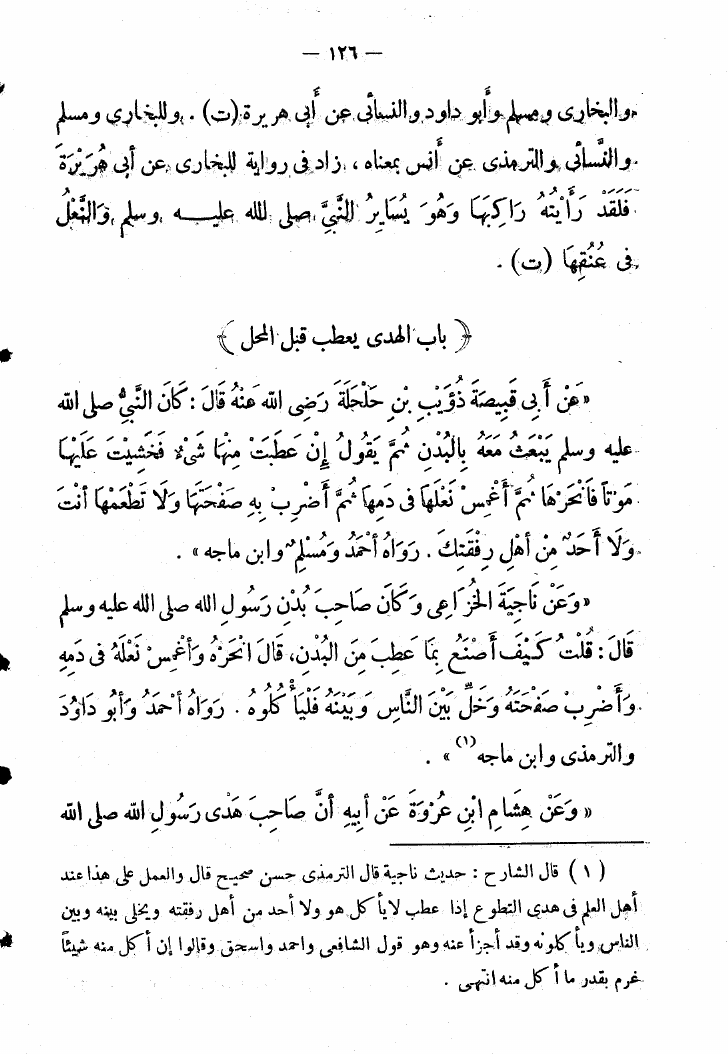 — ١٢٦ —
والبخارى ومسلم وأبو داود والنسائى عن أبى هريرة (ت) . وللبخارى ومسلم
والنَّسائى والترمذى عن أنس بمعناه ، زاد فى رواية للبخارى عن أبى هُرَيْرَةَ
فَلَقَدْ رَأَيْتُهُ رَاكِبَهَا وَهُوَ يُسَايِرُ النَّبِيَّ صلى الله عليـــه وسلم وَالنَّعْلُ
فى عُنُقِهَا (ت) .
﴿ باب الهدى يعطب قبل المحل ﴾
«عَنْ أَبِى قَبِيصَةَ ذُؤَيْبِ بْنِ حَلْحَلَةَ رَضِى اللهُ عَنْهُ قَالَ : كَانَ النَّبِىُّ صلى الله
عليه وسلم يَبْعَثُ مَعَهُ بِالْبُدْنِ ثُمَّ يَقُولُ إِنْ عَطِبَتْ مِنْهَا شَىْءٌ فَخَشِيْتَ عَلَيْهَا
مَوْتاً فَانْحَرْهَا ثُمَّ أَغْمِسْ نَعْلَهَا فى دَمِهَا ثُمَّ أَضْرِبْ بِهِ صَفْحَتَهَا وَلَا تَطْعَمْهَا أَنْتَ
وَلَا أَحَدٌ مِنْ أَهْلِ رِفْقَتِكَ . رَوَاهُ أَحْمَدُ وَمُسْلِمٌ وابن ماجه » .
«وَعَنْ نَاجِيَةَ الْخُزَاعِى وَكَانَ صَاحِبَ بُدْنِ رَسُولِ الله صلى الله عليه وسلم
قَالَ : قُلْتُ كَيْفَ أَصْنَعُ بِمَا عَطِبَ مِنَ الْبُدْنِ، قَالَ انْحَرْهُ وَأَغْمِسْ نَعْلَهُ فى دَمِهِ
وَأَضْرِبْ صَفْحَتَهُ وَخَلِّ بَيْنَ النَّاسِ وَبَيْنَهُ فَلْيَأْكُلُوهُ . رَوَاهُ أَحْمَدُ وَأَبُو دَاوُدَ
والترمذى وابن ماجه(١)» .
« وَعَنْ هِشَامِ ابْنِ عُرْوَةَ عَنْ أَبِيهِ أَنَّ صَاحِبَ هَدْىِ رَسُولِ اللهِ صلى الله
( ١ ) قال الشارح : حديث ناجية قال الترمذى حسن صحيح قال والعمل على هذا عند
أهل العلم فى هدى التطوع إذا عطب لا يأكل هو ولا أحد من أهل رفقته ويخلى بينه وبين
الناس ويأكلونه وقد أجزأ عنه وهو قول الشافعى واحمد واسحق وقالوا إن أكل منه شيئاً
غرم بقدر ما أكل منه انتهى .